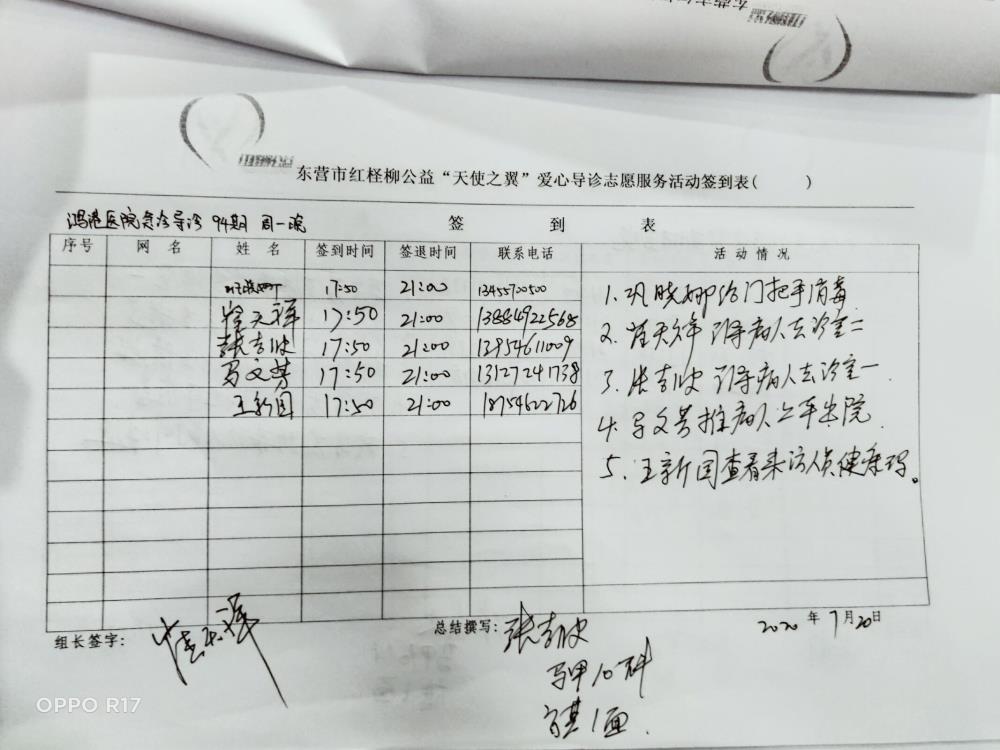 东营市红柽柳公益“天使之翼”爱心导诊志愿服务活动签到表( )
鸿港医院急诊导诊 94期 周一晚
签 到 表
序号 网名 姓名 签到时间 签退时间 联系电话 活动情况
17:50 21:00 13455700500
崔天祥 17:50 21:00 13884922568
张吉波 17:50 21:00 12954611009
马文芳 17:50 21:00 13127241738
王新国 17:50 21:00 18754622726
1. 巩晓娜给门把手消毒
2. 引导病人去诊室二
3. 张吉波 引导病人去诊室一
4. 马文芳推病人上车出院
5. 王新国查看来访人员健康码。
组长签字:
总结撰写: 张吉波
2020 年 7 月 20 日
马甲10件
1面
OPPO R17